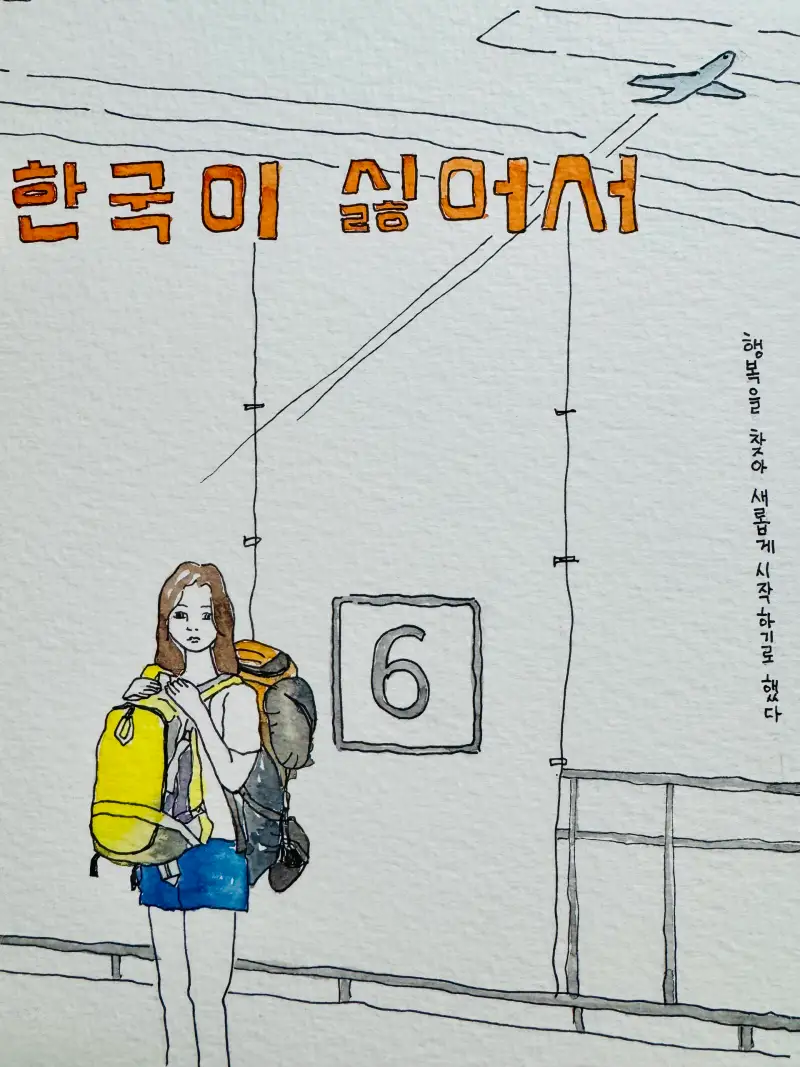 한국이 싫어서
행복을 찾아 새롭게 시작하기로 했다
6